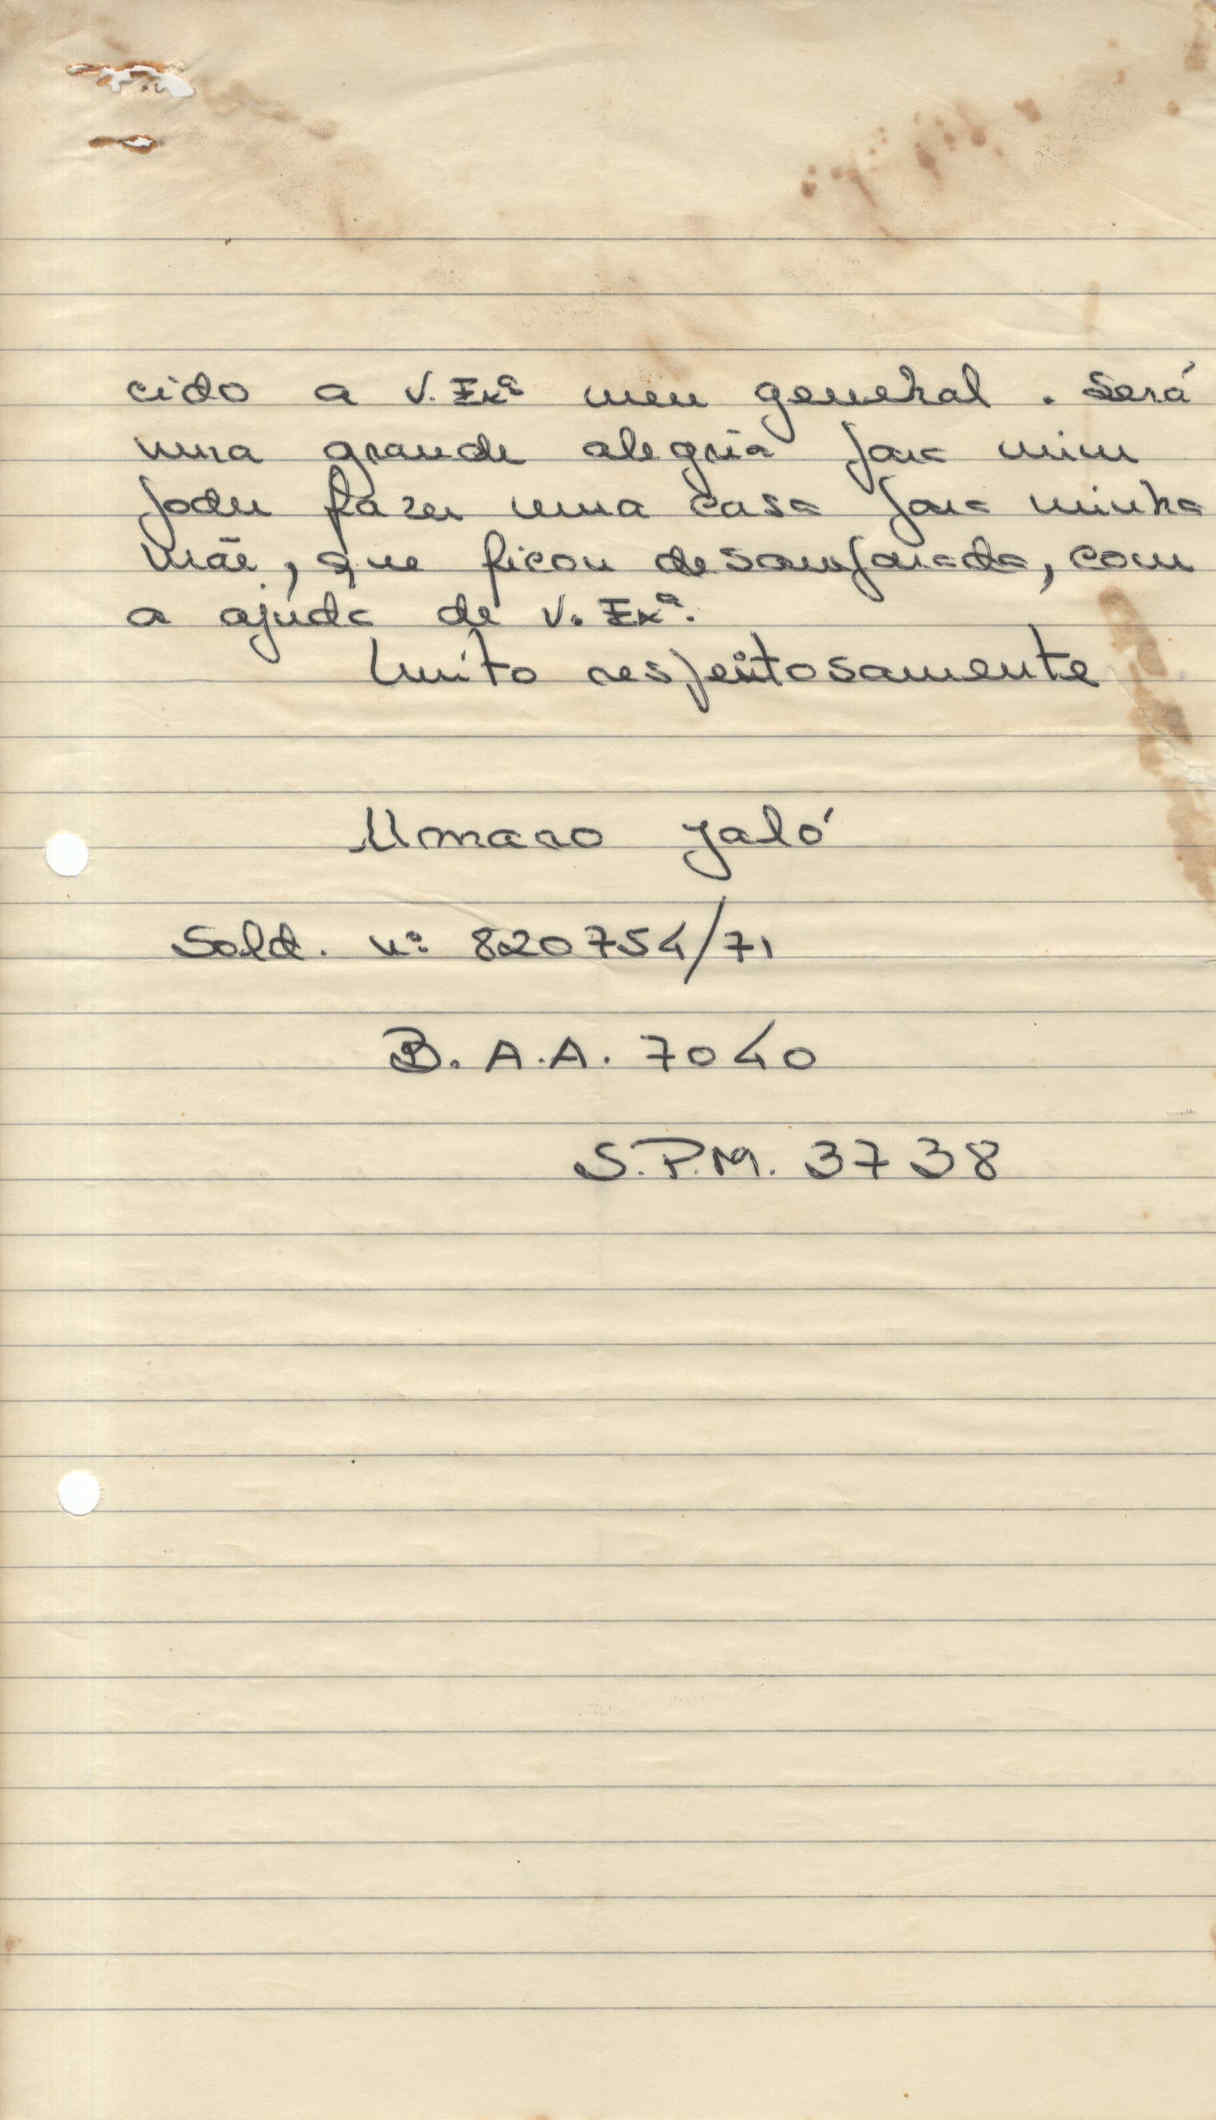 cido a V. Exª meu general. Será
uma grande alegria para mim
poder fazer uma casa para minha
mãe, que ficou desamparada, com
a ajuda de V. Exª.
Muito respeitosamente
Umaro Jaló
Sold. nº 820754/71
B.A.A. 7040
S.P.M. 3738